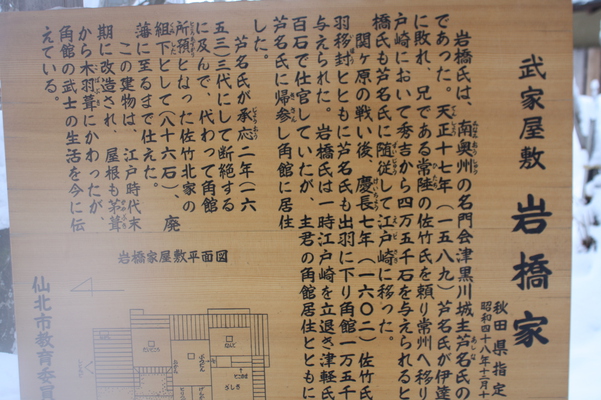 武家屋敷 岩橋家
秋田県指定
昭和四十八年十二月十
岩橋氏は、南奥州の名門会津黒川城主芦名氏の
であった。天正十七年(一五八九)芦名氏が伊達
に敗れ、兄である常陸の佐竹氏を頼り常州へ移り
戸崎において秀吉から四万五千石を与えられると
橋氏も芦名氏に随従して江戸崎に移った。
関ヶ原の戦い後、慶長七年(一六〇二)佐竹氏
羽移封とともに芦名氏も出羽に下り角館一万五千
与えられた。岩橋氏は一時江戸崎を立退き津軽氏
百石で仕官していたが、主君の角館居住とともに
芦名氏に帰参し角館に居住
した。
芦名氏が承応二年(一六
五三)三代にして断絶する
に及んで、代わって角館
所預となった佐竹北家の
組下として(八十六石)、廃
藩に至るまで仕えた。
この建物は、江戸時代末
期に改造され、屋根も茅葺
から木羽葺にかわったが、
角館の武士の生活を今に伝
えている。
岩橋家屋敷平面図
ざしき
仙北市教育委員